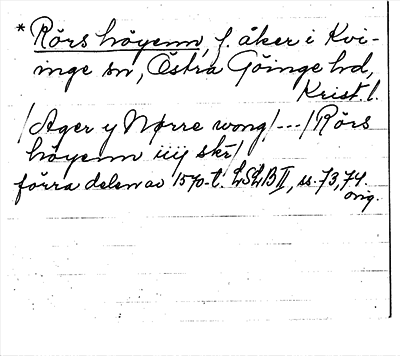 * Rörs höyenn, f. åker i Kvi-
inge sn, Östra Göinge hd,
Krist. l.
/Ager y Nørre wong/---/Rörs
höyenn iiij skr/
förra delen av 1570-t. LSLB II, ss. 73, 74.
orig.